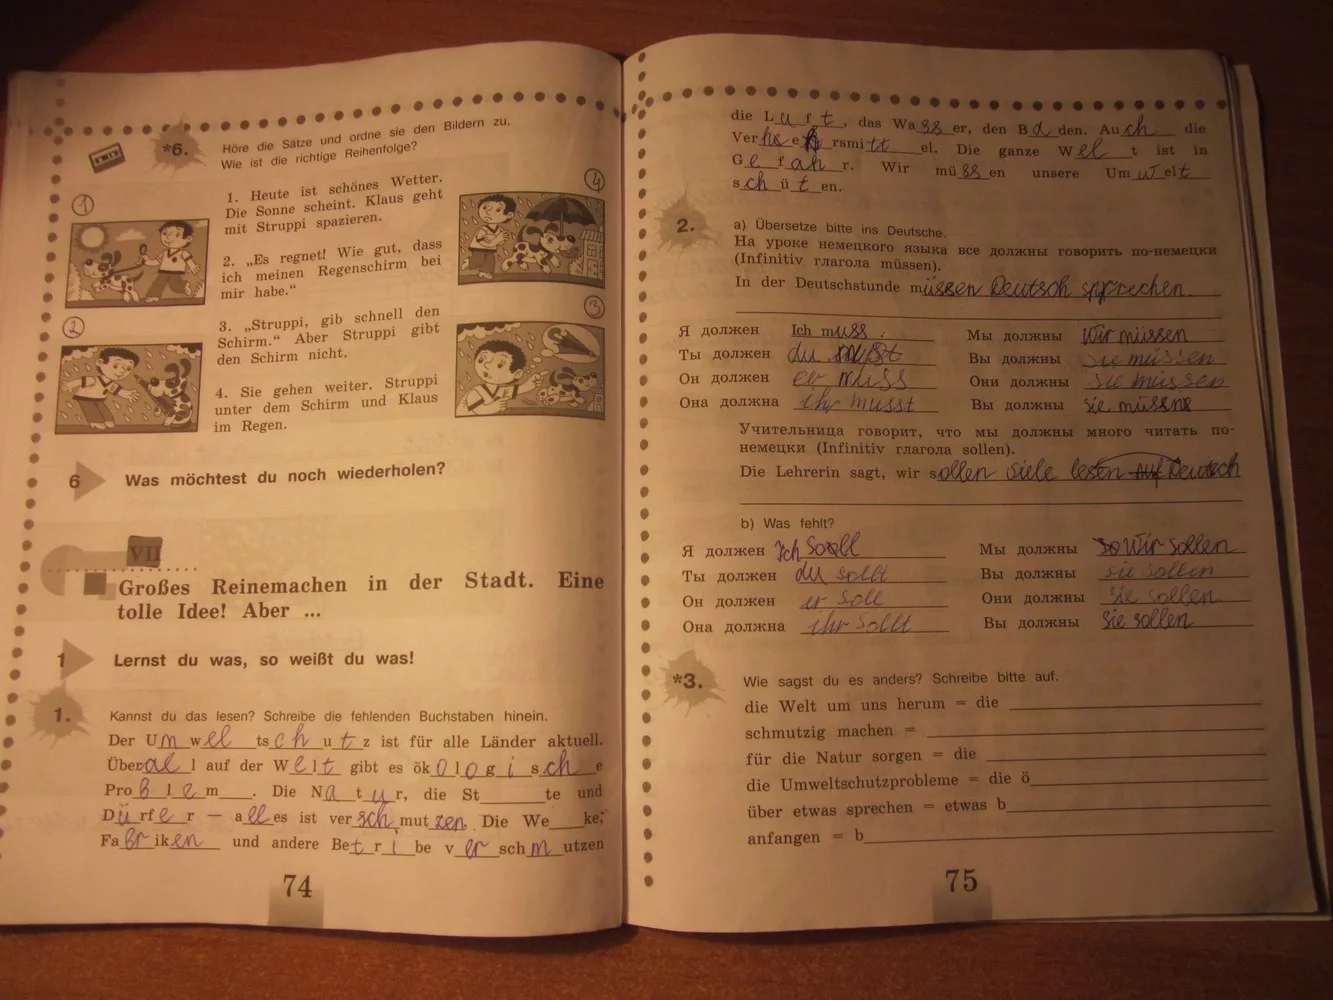 *6. Höre die Sätze und ordne sie den Bildern zu.
Wie ist die richtige Reihenfolge?
1
4
1. Heute ist schönes Wetter.
Die Sonne scheint. Klaus geht
mit Struppi spazieren.
2. „Es regnet! Wie gut, dass
ich meinen Regenschirm bei
mir habe.“
2
3
3. „Struppi, gib schnell den
Schirm.“ Aber Struppi gibt
den Schirm nicht.
4. Sie gehen weiter. Struppi
unter dem Schirm und Klaus
im Regen.
6 Was möchtest du noch wiederholen?
VII
Großes Reinemachen in der Stadt. Eine
tolle Idee! Aber ...
1 Lernst du was, so weißt du was!
1. Kannst du das lesen? Schreibe die fehlenden Buchstaben hinein.
Der Umweltschutz ist für alle Länder aktuell.
Überall auf der Welt gibt es ökologische
Problem___. Die Natur, die St___te und
Dürfer — alles ist verschmutzen. Die We___ke,
Fabriken und andere Betribe verschmutzen
74
die Luft, das Wasser, den Baden. Auch die
Ver rsmittel. Die ganze Welt ist in
Gefahr. Wir müssen unsere Umwelt
schüten.
2. a) Übersetze bitte ins Deutsche.
На уроке немецкого языка все должны говорить по-немецки
(Infinitiv глагола müssen).
In der Deutschstunde müssen Deutsch sprechen.
Я должен Ich muss. Мы должны Wir müssen
Ты должен du must Вы должны Sie müssen
Он должен er muss Они должны Sie müssen
Она должна ihr musst Вы должны Sie müssen
Учительница говорит, что мы должны много читать по-
немецки (Infinitiv глагола sollen).
Die Lehrerin sagt, wir sollen siele lesen auf Deutsch
b) Was fehlt?
Я должен Ich soll Мы должны Wir sollen
Ты должен du sollt Вы должны sie sollen
Он должен er soll Они должны Sie sollen
Она должна ihr sollt Вы должны Sie sollen
*3. Wie sagst du es anders? Schreibe bitte auf.
die Welt um uns herum = die
schmutzig machen =
für die Natur sorgen = die
die Umweltschutzprobleme = die ö
über etwas sprechen = etwas b
anfangen = b
75